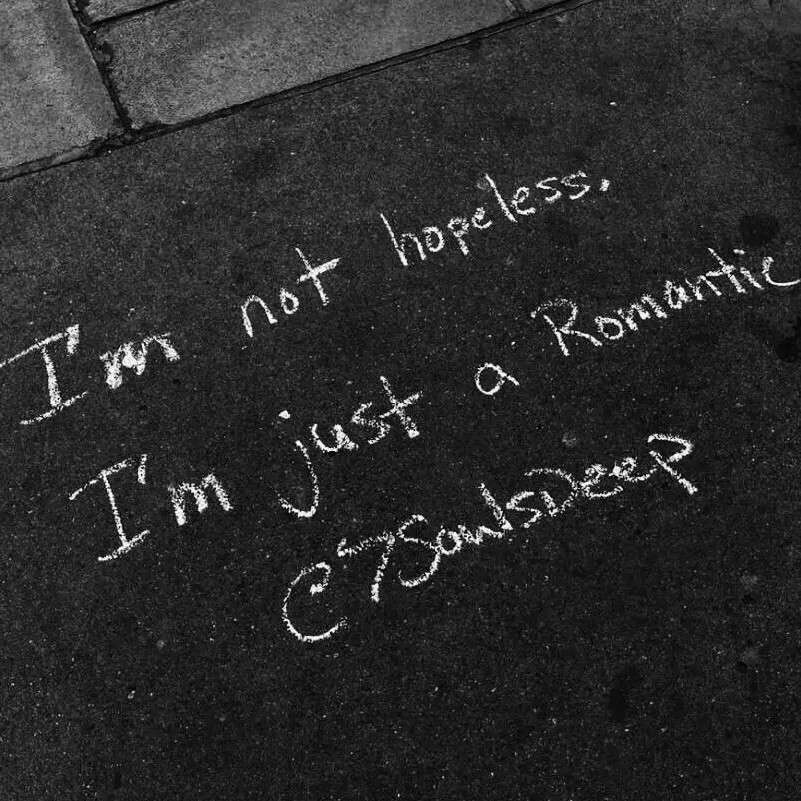 I'm not hopeless.
I'm just a Romantic
@7SoulsDeep